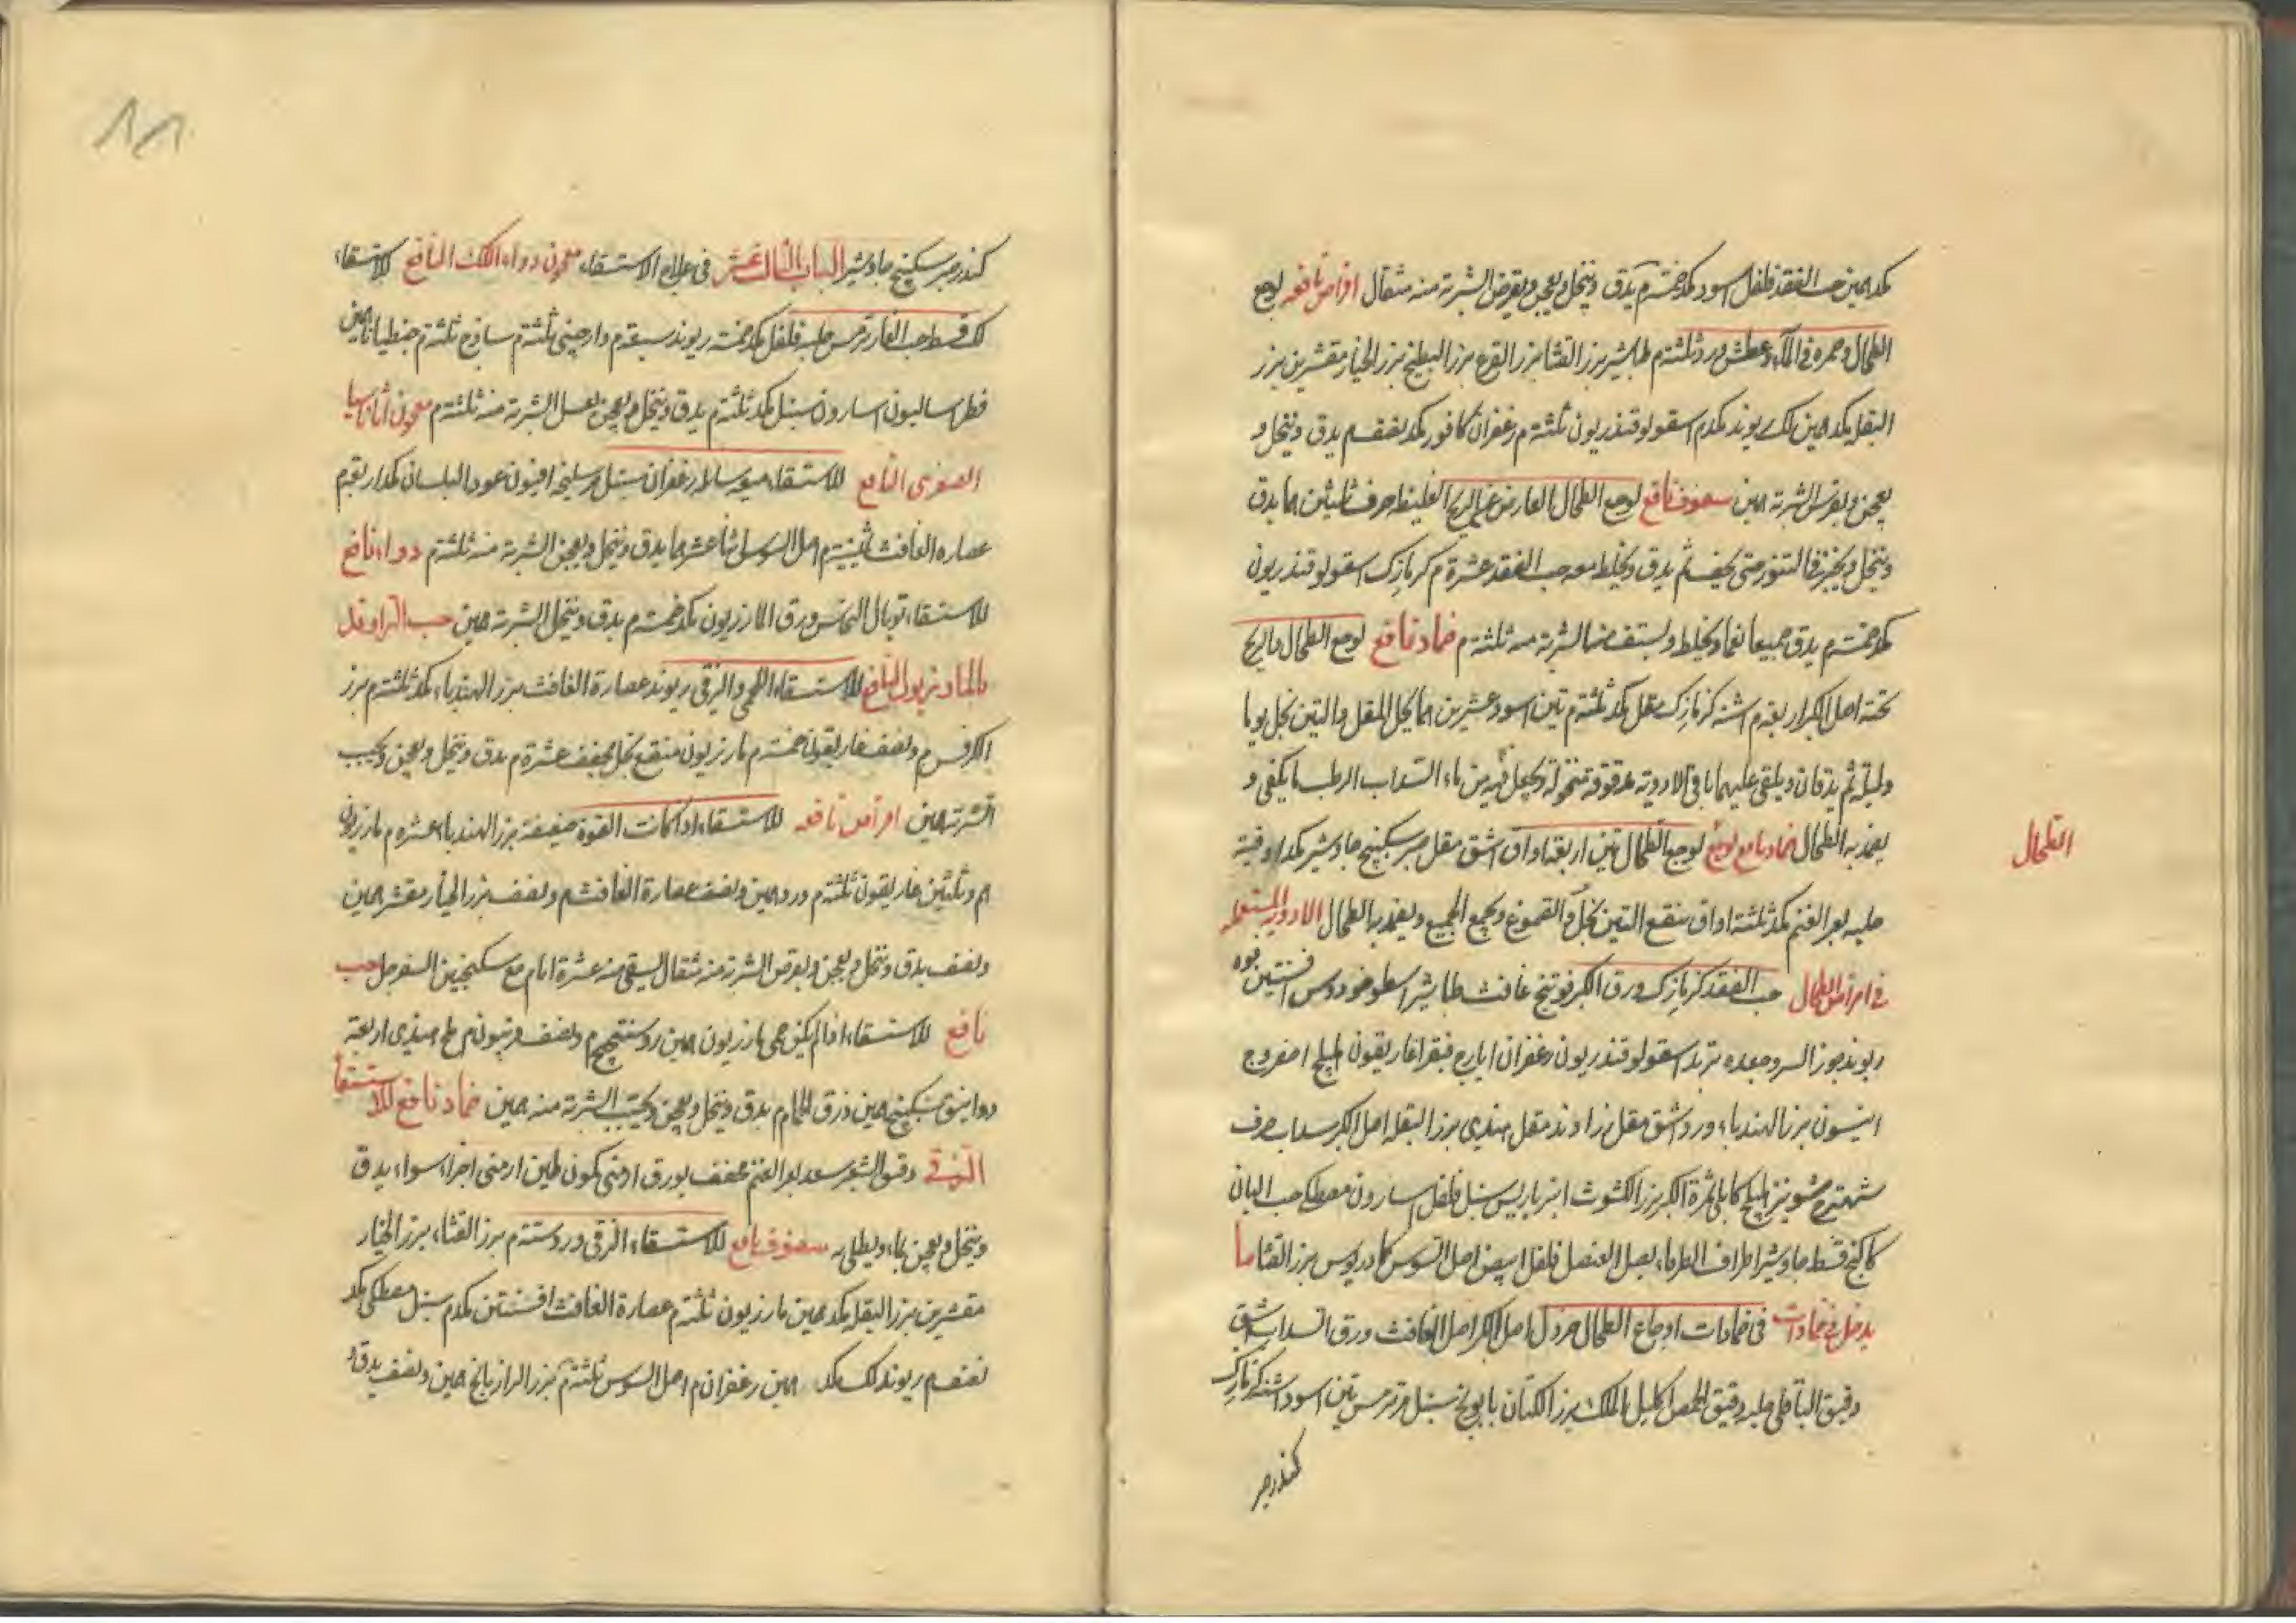 كمد همين حب الفقد فلفل اسود كمد خمسة م يدق وينخل ويعجن ويقرص الشربة منه مثقال اقراص نافعه لوجع
الطحال وحمره في الماء وعطش ورد ثلثة م طباشير بزر القثا بزر القرع بزر البطيخ بزر الخيار مقشرين بزر
البقله كمد همين لك ريوند كمد م اسقولوقندريون ثلثة م زعفران كافور كمد نصف م يدق وينخل و
يعجن ويقرص الشربة همين سفوف نافع لوجع الطحال العارض عن الريح الغليظه حرف ثلثين هما يدق
وينخل ويخبز في التنور حتى يجف ثم يدق ويخلط معه حب الفقد عشرة م كزمازك اسقولوقندريون
كمد خمسة م يدق جميعا نعما ويخلط ويستف منه الشربة منه ثلثة م ضماد نافع لوجع الطحال والريح
تحته اصل الكبر اربعة م اشنه كزمازك مقل كمد ثلثة م تين اسود عشرين هما يحل المقل والتين بخل يوما
وليلة ثم يدقان ويلقى عليهما باقي الادوية مدقوقة منخولة ويجعل فيه من ماء السداب الرطب ما يكفى و
يضمد به الطحال ضماد نافع لوجع الطحال تين اربعة اواق اشق مقل صبر سكبينج جاوشير كمد اوقية
حلبه بعر الغنم كمد ثلثة اواق ينقع التين بخل والقموغ ويجمع الجميع ويضمد به الطحال الادوية المستعملة
في امراض الطحال حب الفقد كزمازك ورق الكبر فوتنج غافث طباشير اسطوخودوس افسنتين فوه
ريوند جوز السرو جعده تربد اسقولوقندريون زعفران ايارج فيقرا غاريقون هليلج اصفر وج
انيسون بزر الهندباء ورد اشق مقل زراوند مقل هندى بزر البقله اصل الكبر سداب حرف
شهترج شونيز هليلج كابلى ثمرة الكبر بزر الكشوث انبرباريس سنبل فلفل اسارون مصطكى حب البان
كاكنج قسط جاوشير اطراف الطرفاء بصل العنصل فلفل ابيض اصل السوس كمادريوس بزر القثا ما
يدخل في ضمادات في ضمادات اوجاع الطحال خردل اصل الكبر اصل الغافث ورق السداب اشق
دقيق الباقلى حلبه دقيق الحمص اكليل الملك بزر الكتان بابونج سنبل ترمس تين اسود اشنه كزمازك
كندر صبر
الطحال
كندر صبر سكبينج جاوشير الباب الثالث عشر في علاج الاستسقاء معجون دواء اللك النافع للاستسقاء
لك قسط حب الغار ترمس حلبه فلفل كمد خمسة ريوند سبعة م دارچينى ثلثة م ساذج ثلثة م جنطيانا همين
فطراساليون اسارون سنبل كمد ثلثة م يدق وينخل ويعجن بعسل الشربة منه ثلثة م معجون اثاناسيا
الصغرى النافع للاستسقاء ميعه سائله زعفران سنبل مر سليخه افيون عود البلسان كمد اربعة م
عصاره الغافث ثمنية م اصل السوس اثنا عشر هما يدق وينخل ويعجن الشربة منه ثلثة م دواء نافع
للاستسقاء توبال النحاس ورق المازريون كمد خمسة م يدق وينخل الشربة همين حب الراوند
بالمازريون النافع للاستسقاء اللحمى والزقى ريوند عصارة الغافث بزر الهندباء كمد ثلثة م بزر
الكرفس م ونصف غاريقون خمسة م مازريون منقع بخل مجفف عشرة م يدق وينخل ويعجن ويحبب
الشربة همين اقراص نافعه للاستسقاء اذا كانت القوة ضعيفة بزر الهندباء عشره م مازريون
م وثلثين غاريقون ثلثة م ورد همين ونصف عصارة الغافث م ونصف بزر الخيار مقشر همين
ونصف يدق وينخل ويعجن ويقرص الشربة منه مثقال يسقى منه عشرة ايام مع سكنجبين السفرجل حب
نافع للاستسقاء اذا لم يكن حمى مازريون همين روسختج م ونصف فربيون م ملح هندى اربعة
دوانيق سكبينج همين ذرق الحمام م يدق وينخل ويعجن ويحبب الشربة منه همين ضماد نافع للاستسقاء
الزقى دقيق الشعير سعد بعر الغنم مجفف بورق ارمنى كمون طين ارمنى اجزاء سواء يدق
وينخل ويعجن بماء ويطلى به سفوف نافع للاستسقاء الزقى ورد ستة م بزر القثاء بزر الخيار
مقشرين بزر البقله كمد همين مازريون ثلثة م عصارة الغافث افسنتين كمد م سنبل مصطكى كمد
نصف م ريوند لك كمد همين زعفران م اصل السوس ثلثة م بزر الرازيانج همين ونصف يدق و